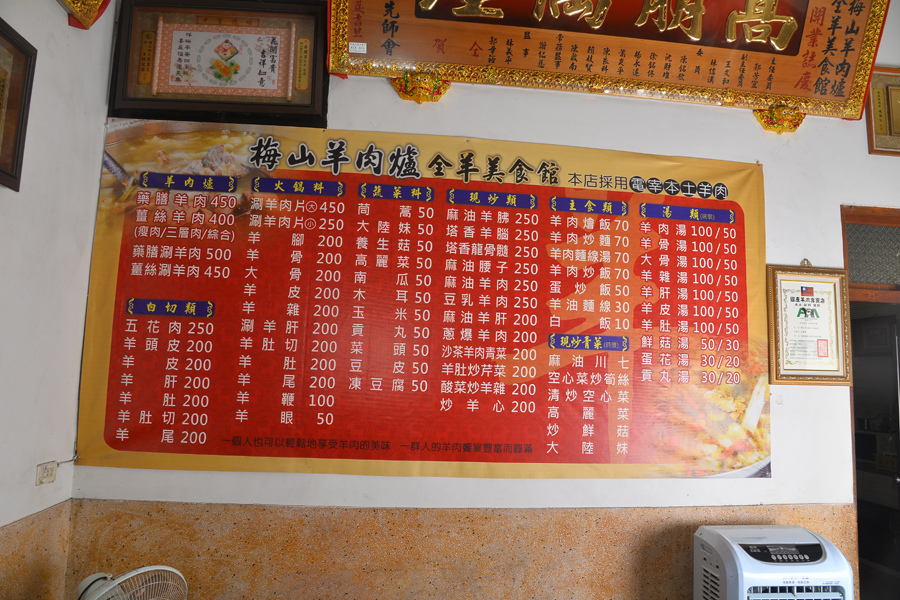 梅山羊肉爐
全羊美食館
開業誌慶
高朋滿座
賀
全
先師會
花開富貴
吉祥如意
梅山羊肉爐 全羊美食館 本店採用電宰本土羊肉
羊肉爐
藥膳羊肉 450
薑絲羊肉 400
(瘦肉/三層肉/綜合)
藥膳涮羊肉 500
薑絲涮羊肉 450
白切類
五花肉 250
羊頭皮 200
羊皮 200
羊肝 200
羊肚 200
羊肚切 200
羊尾 200
火鍋料
涮羊肉片(大) 450
涮羊肉片(小) 250
羊腳 200
羊骨 200
大骨 200
羊皮 200
羊雜 200
涮羊肝 200
羊肚切 200
羊肚 200
羊尾 200
羊鞭 100
羊眼 50
蔬菜料
茼蒿 50
大陸妹 50
養生菇 50
高麗菜 50
南瓜 50
木耳 50
玉米 50
貢丸 50
菜頭 50
豆皮 50
凍豆腐 50
現炒類
麻油羊腓 250
塔香羊腦 250
塔香龍骨髓 250
麻油腰子 250
麻油羊肉 250
豆乳羊肉 200
麻油羊肝 200
蔥爆羊肉 200
沙茶羊肉青菜 200
羊肚炒芹菜 200
酸菜炒羊雜 200
炒羊心 200
主食類
羊肉燴飯 70
羊肉炒麵 70
羊肉麵線湯 70
羊肉炒飯 70
蛋炒飯 50
羊油麵線 30
白飯 10
現炒青菜(時價)
麻油川七
空心菜炒筍絲
清炒空心菜
高麗菜
炒鮮菇
大陸妹
湯類
羊肉湯 100/50
羊骨湯 100/50
大骨湯 100/50
羊雜湯 100/50
羊肝湯 100/50
羊皮湯 100/50
羊肚湯 100/50
鮮菇湯 50/30
蛋花湯 30/20
貢丸湯 30/20
一個人也可以輕鬆地享受羊肉的美味 一群人的羊肉饗宴豐富而圓滿